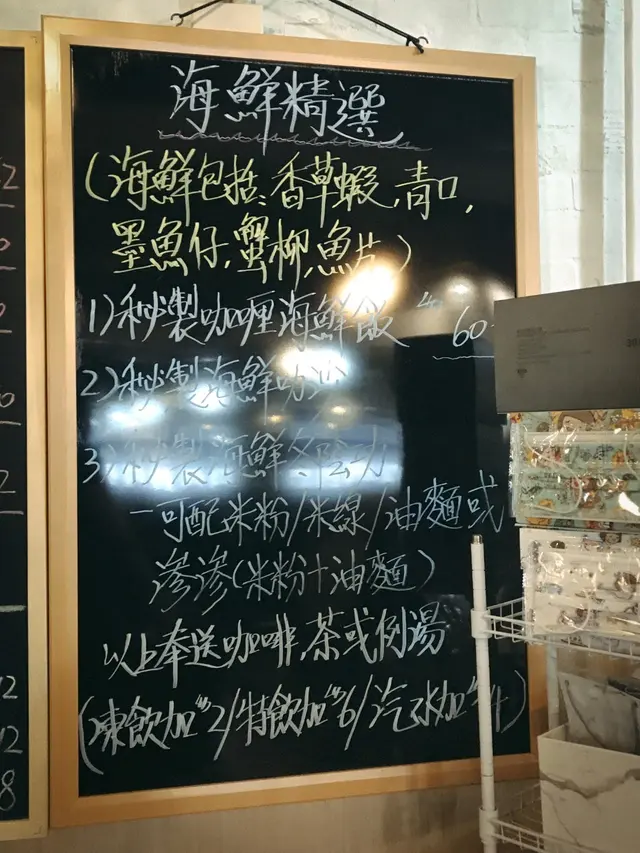 海鮮精選
(海鮮包括:香草蝦,青口,
墨魚仔,蟹柳,魚片)
1)秘製咖喱海鮮飯 $60
2)秘製海鮮叻沙
3)秘製海鮮冬陰功
－可配米粉/米線/油麵或
滲滲(米粉+油麵)
以上奉送咖啡,茶或例湯
(凍飲加$2/特飲加$6/汽水加$4)